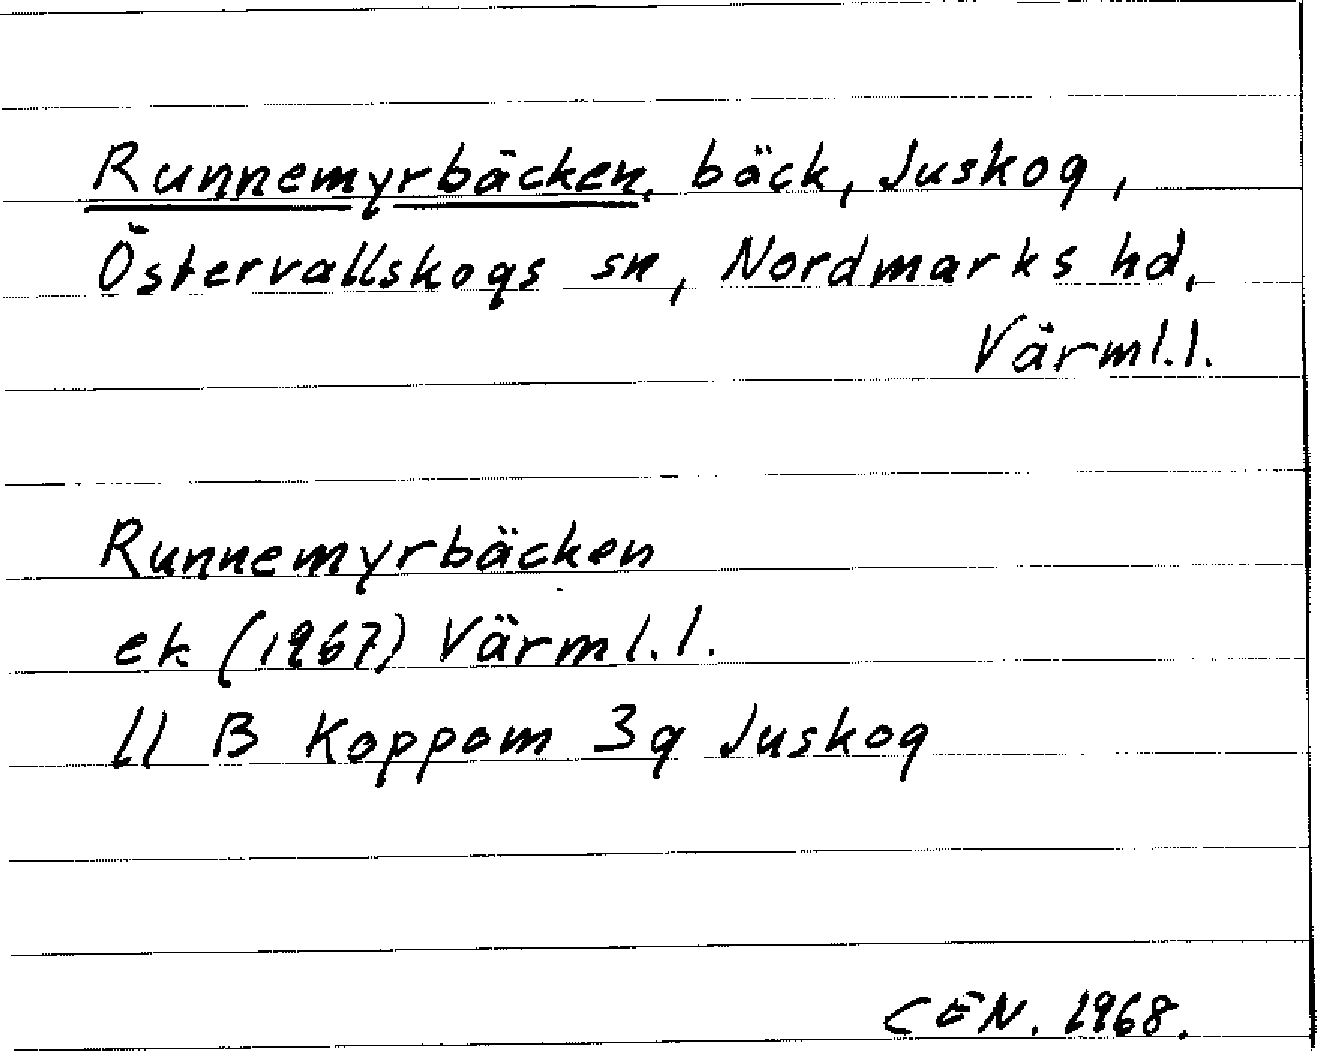 Runnemyrbäcken, bäck, Juskog,
Östervallskogs sn, Nordmarks hd,
Värml.l.
Runnemyrbäcken
ek (1967) Värml.l.
11 B Koppom 3g Juskog
CEN. 1968.